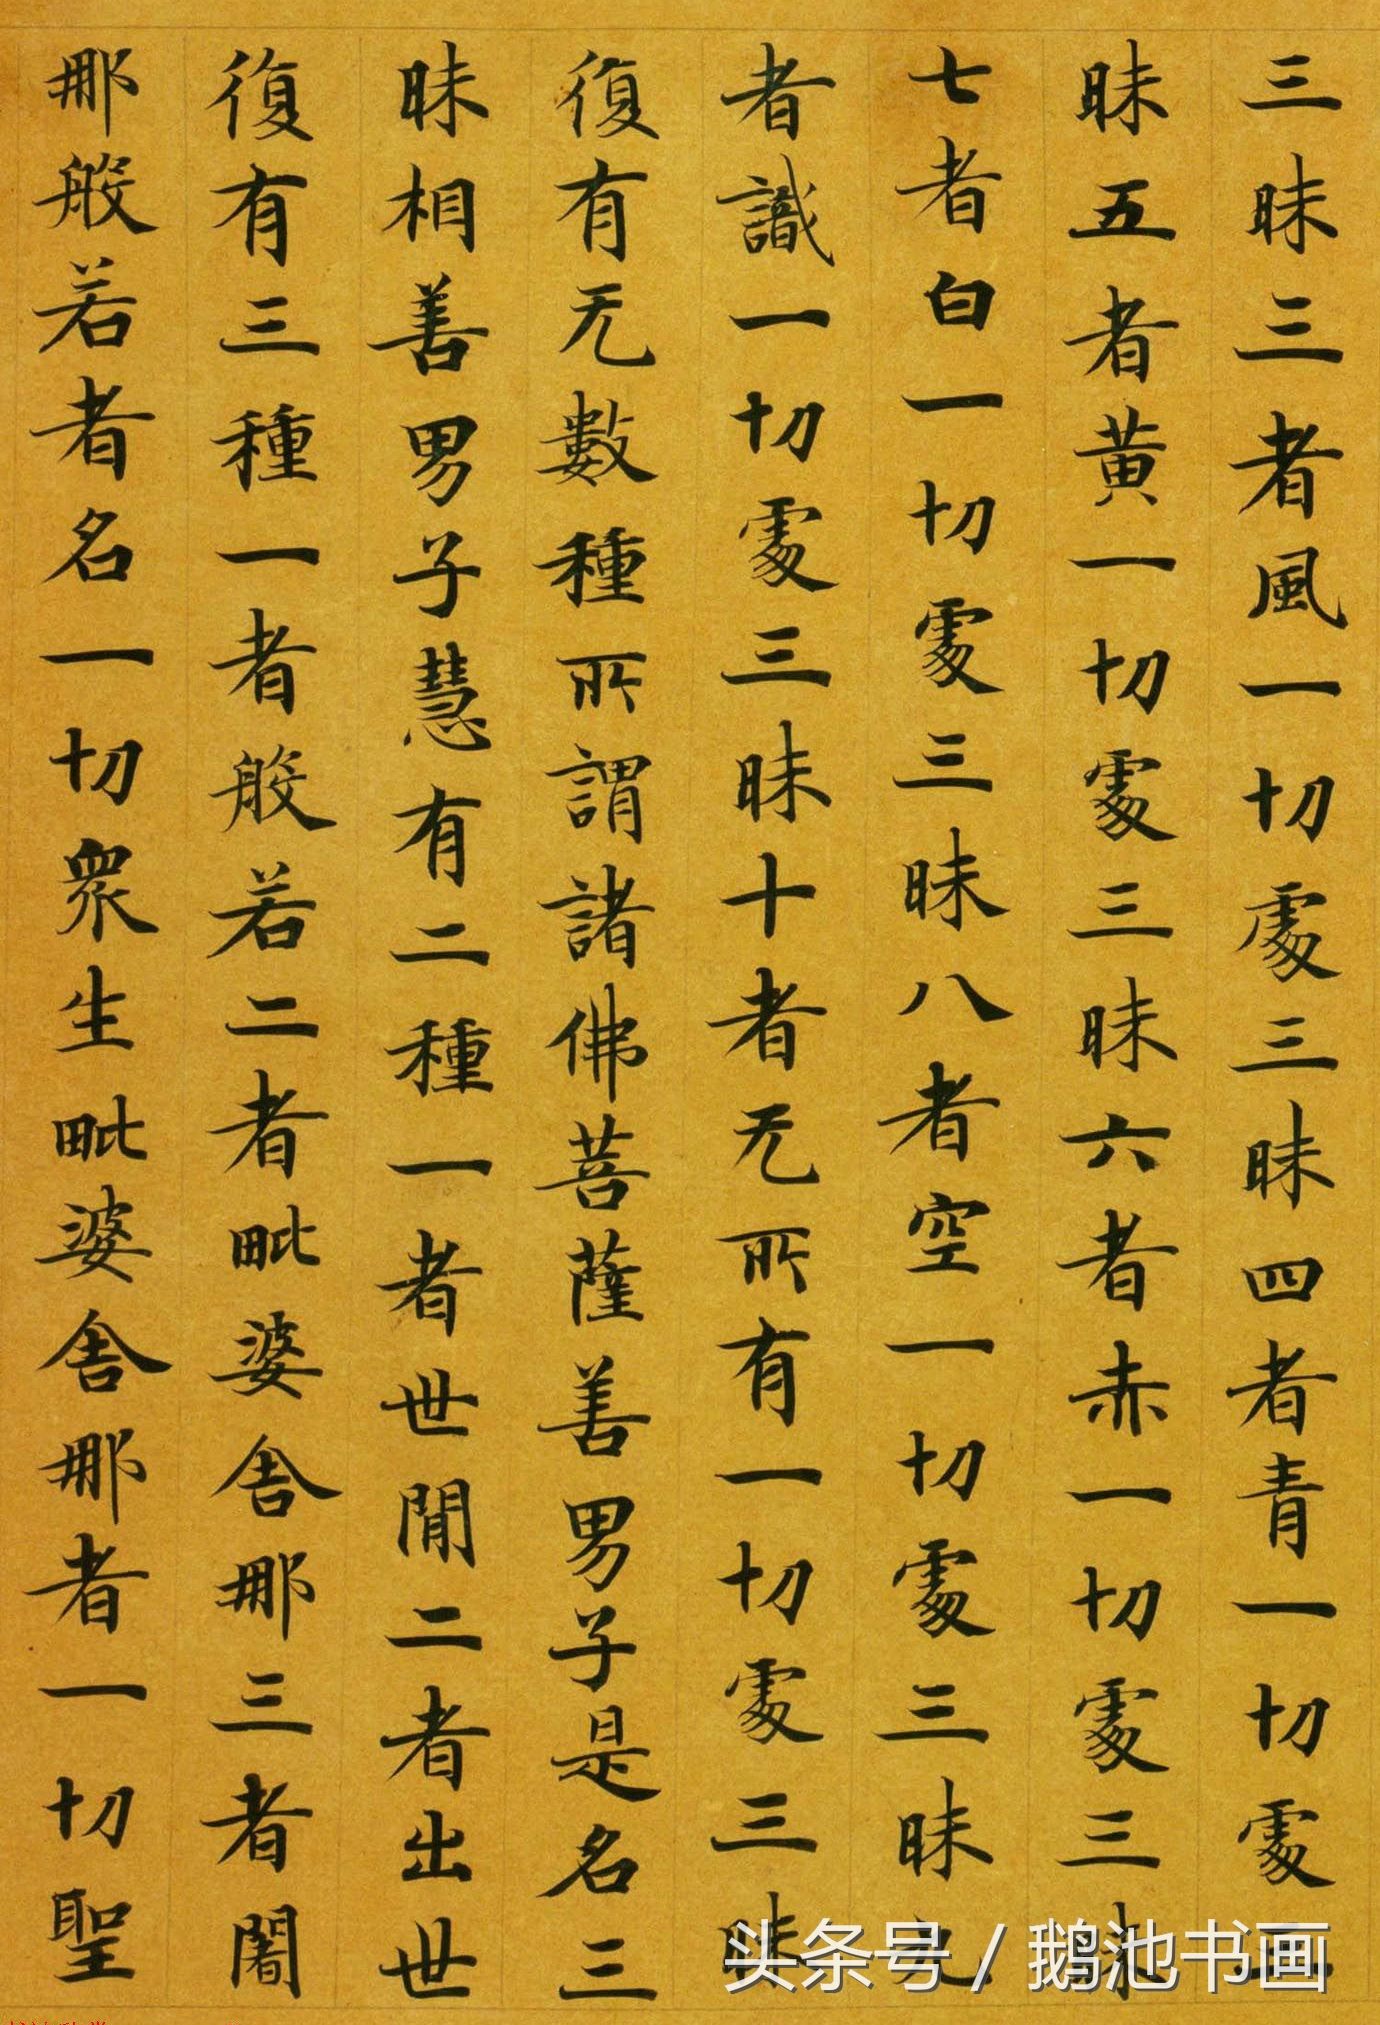 三昧三者風一切處三昧四者青一切處三
昧五者黄一切處三昧六者赤一切處三昧
七者白一切處三昧八者空一切處三昧九
者識一切處三昧十者无所有一切處三昧
復有无數種所謂諸佛菩薩善男子是名三
昧相善男子慧有二種一者世閒二者出世
復有三種一者般若二者毗婆舍那三者闍
那般若者名一切衆生毗婆舍那者一切聖
头条号 / 鹅池书画